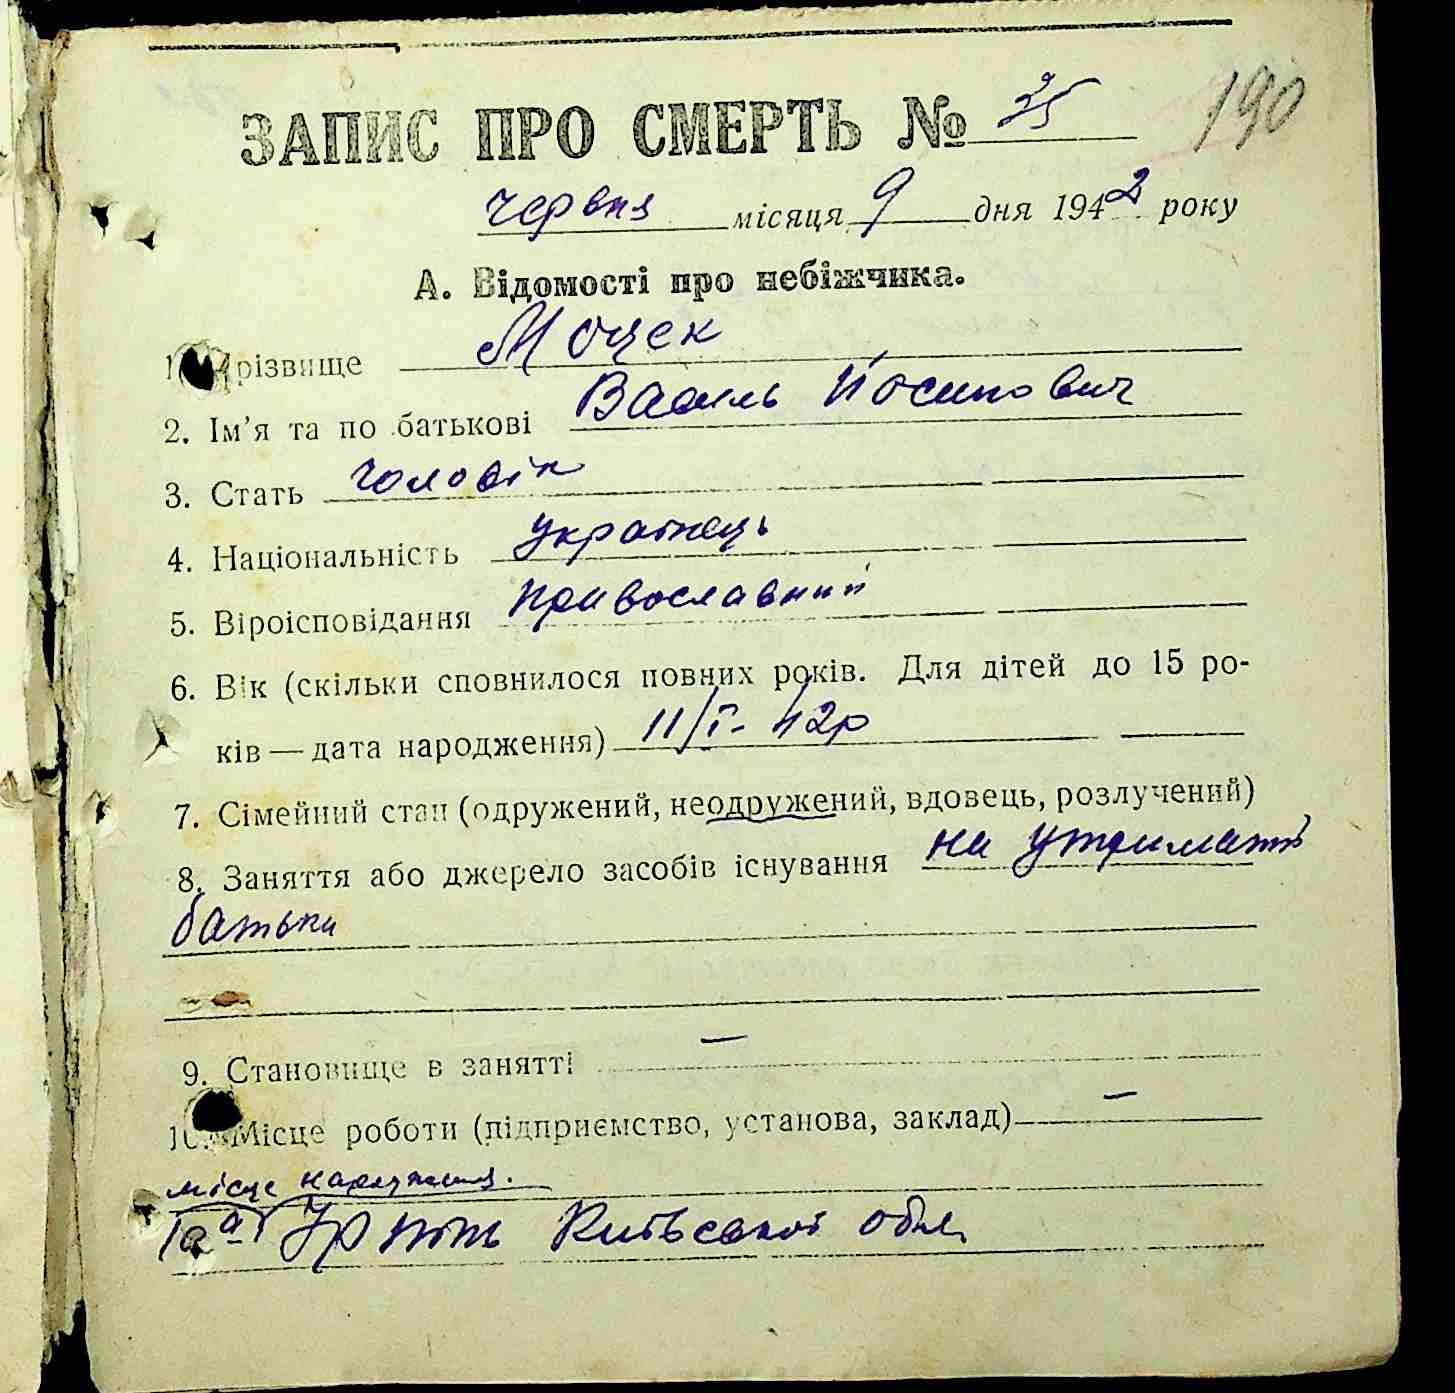 190
ЗАПИС ПРО СМЕРТЬ № 35
червня місяця 9 дня 1942 року
А. Відомості про небіжчика.
1. Прізвище Моцек
2. Ім’я та по батькові Василь Йосипович
3. Стать чоловік
4. Національність українець
5. Віроісповідання православний
6. Вік (скільки сповнилося повних років. Для дітей до 15 ро-
ків — дата народження) 11/I- 42р
7. Сімейний стан (одружений, неодружений, вдовець, розлучений)
8. Заняття або джерело засобів існування на утриманні
батьки
9. Становище в занятті —
10. Місце роботи (підприємство, установа, заклад) —
місце народження.
Ірпінь Київської обл.